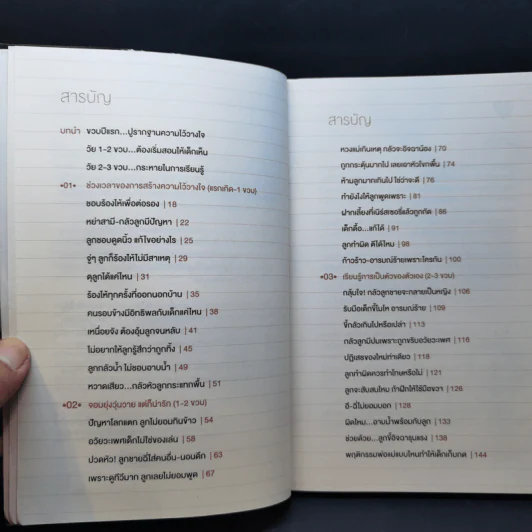 สารบัญ
บทนำ ขวบปีแรก...ปูรากฐานความไว้วางใจ
วัย 1-2 ขวบ...ต้องเริ่มสอนให้เด็กเห็น
วัย 2-3 ขวบ...กระหายในการเรียนรู้
•01• ช่วงเวลาของการสร้างความไว้วางใจ (แรกเกิด-1 ขวบ)
ชอบร้องให้เพื่อต่อรอง | 18
หย่าสามี-กลัวลูกมีปัญหา | 22
ลูกชอบดูดนิ้ว แก้ไขอย่างไร | 25
จู่ๆ ลูกก็ร้องให้ไม่มีสาเหตุ | 29
ดุลูกได้แค่ไหน | 31
ร้องให้ทุกครั้งที่ออกนอกบ้าน | 35
คนรอบข้างมีอิทธิพลกับเด็กแค่ไหน | 38
เหนื่อยจัง ต้องอุ้มลูกจนหลับ | 41
ไม่อยากให้ลูกรู้สึกว่าถูกทิ้ง | 45
ลูกกลัวน้ำ ไม่ชอบอาบน้ำ | 49
หวาดเสียว...กลัวหัวลูกกระแทกพื้น | 51
•02• จอมยุ่งวุ่นวาย แต่ก็น่ารัก (1-2 ขวบ)
ปัญหาโลกแตก ลูกไม่ยอมกินข้าว | 54
อวัยวะเพศเด็กไม่ใช่ของเล่น | 58
ปวดหัว! ลูกชายฉี่ใส่คนอื่น-นอนดึก | 63
เพราะดูทีวีมาก ลูกเลยไม่ยอมพูด | 67
สารบัญ
หวงแม่เกินเหตุ กลัวจะอิจฉาน้อง | 70
ถูกกระตุ้นมากไป เลยเอาหัวโขกพื้น | 74
ห้ามลูกมากเกินไป ใช่ว่าจะดี | 76
ทำยังไงให้ลูกพูดเพราะ | 81
ฝากเลี้ยงที่เนิร์สเซอรี่แล้วถูกกัด | 86
เด็กดื้อ...แก้ได้ | 91
ลูกทำผิด ตีได้ไหม | 98
ก้าวร้าว-อารมณ์ร้ายเพราะใครกัน | 100
•03• เรียนรู้การเป็นตัวของตัวเอง (2-3 ขวบ)
กลุ้มใจ! กลัวลูกชายจะกลายเป็นหญิง | 106
รับมือเด็กขี้โมโห อารมณ์ร้าย | 109
ขี้กลัวเกินไปหรือเปล่า | 113
กลัวลูกมีปมเพราะถูกขริบอวัยวะเพศ | 116
ปฏิเสธของใหม่ท่าเดียว | 118
ลูกทำผิดควรทำโทษหรือไม่ | 121
ลูกจะสับสนไหม ถ้าฝึกให้ใช้มือขวา | 126
อึ-ฉี่ไม่ยอมบอก | 128
ผิดไหม...อาบน้ำพร้อมกับลูก | 133
ช่วยด้วย...ลูกขี้อิจฉารุนแรง | 138
พฤติกรรมพ่อแม่แบบไหนทำให้เด็กเก็บกด | 144